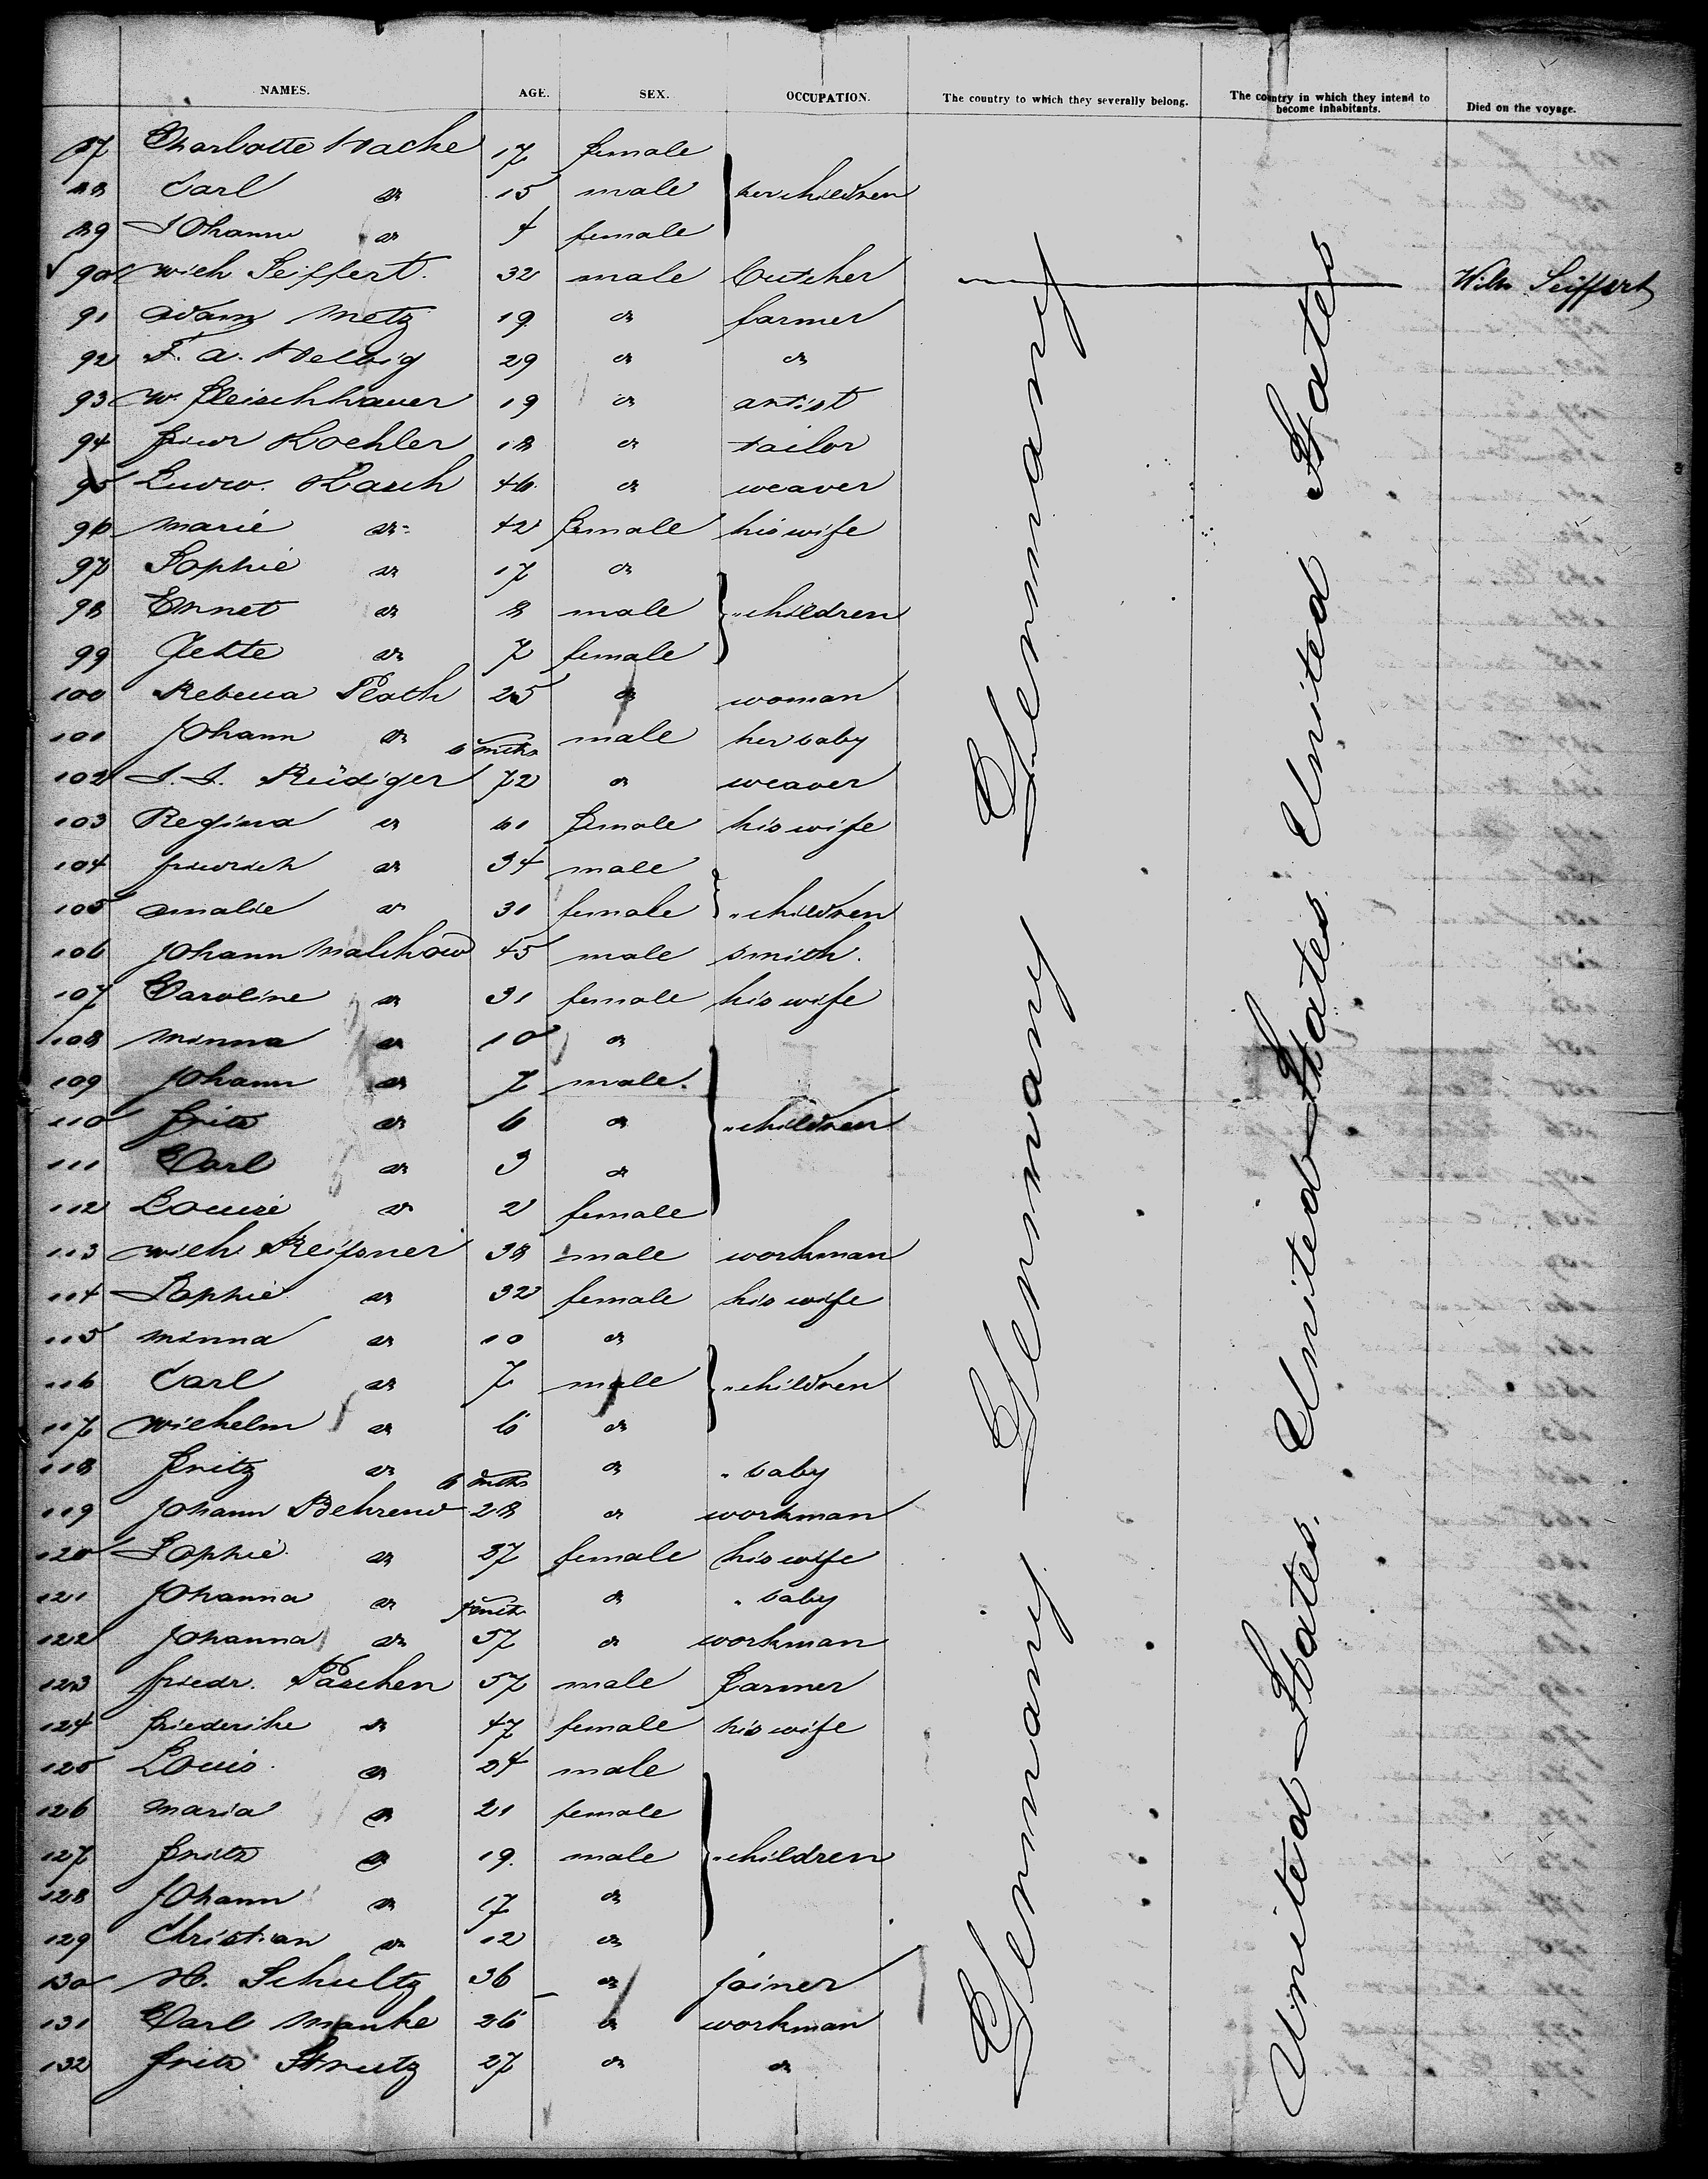 NAMES. AGE. SEX. OCCUPATION. The country to which they severally belong. The country in which they intend to become inhabitants. Died on the voyage.
87 Charlotte Hache 17 female
88 Carl do 15 male her children
89 Johann do 4 female
90 Wilh Seiffert. 32 male butcher Wilh Seiffert
91 Adam Metz 19 do farmer
92 F. A. Helbig 29 do do
93 W. Fleischhauer 19 do artist
94 Friedr Koehler 18 do tailor
95 Ludw. Kasch 46 do weaver
96 Marie do 42 female his wife
97 Sophie do 17 do
98 Ernnet do 8 male " children
99 Jette do 7 female
100 Rebecca Plath 25 do woman
101 Johann do 6 mths male her baby
102 J. J. Rüdiger 72 do weaver
103 Regina do 61 female his wife
104 Friedrich do 34 male
105 Amalie do 31 female " children
106 Johann Malchow 45 male smith.
107 Caroline do 31 female his wife
108 Minna do 10 do
109 Johann do 7 male.
110 Fritz do 6 do " children
111 Carl do 3 do
112 Louise do 2 female
113 Wilh Reissner 38 male workman
114 Sophie do 32 female his wife
115 Minna do 10 do
116 Carl do 7 male " children
117 Wilhelm do 6 do
118 Fritz do 6 mths do " baby
119 Johann Behrend 28 do workman
120 Sophie do 27 female his wife
121 Johanna do 4 mths do " baby
122 Johanna do 57 do workman
123 Friedr. Paschen 57 male farmer
124 Friederike do 47 female his wife
125 Louis do 24 male
126 Maria do 21 female
127 Fritz do 19. male " children
128 Johann do 17 do
129 Christian do 12 do
130 H. Schultz 36 do joiner
131 Carl Manke 26 do workman
132 Fritz Strutz 27 do do
Germany Germany Germany Germany
United States. United States. United States. United States